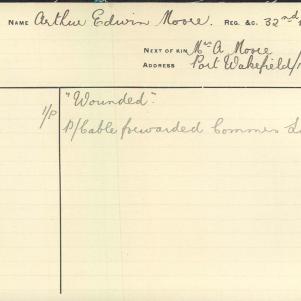 NAME Arthur Edwin Moore. REG. &C. 32nd
NEXT OF KIN Mrs A Moore
ADDRESS Port Wakefield
1/P "Wounded".
P/Cable forwarded Commen